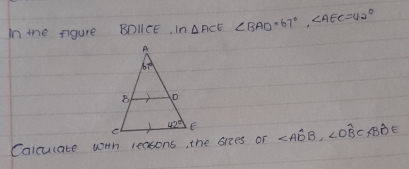 In the figure BD||CE. In ΔACE ∠BAD=67°, ∠AEC=42°
A
67°
B
D
C
42°
E
Calculate with reasons, the sizes of ∠AD̂B, ∠DB̂C, BD̂E